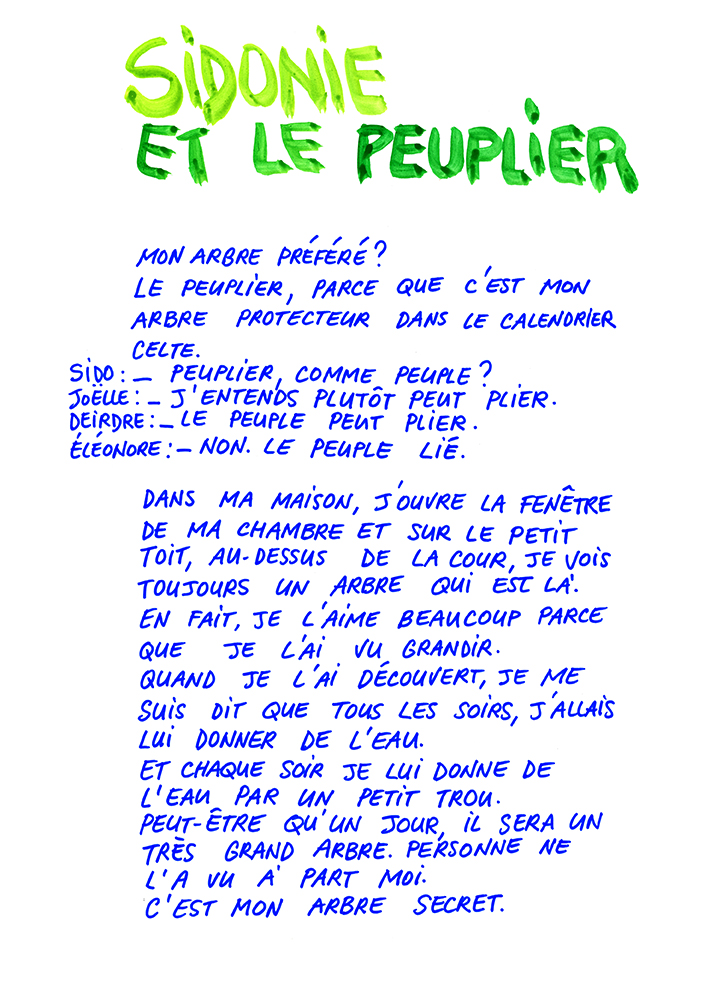 SiDONiE
ET LE PEUPLiER
MON ARBRE PRÉFÉRÉ ?
LE PEUPLIER, PARCE QUE C'EST MON
ARBRE PROTECTEUR DANS LE CALENDRIER
CELTE.
SiDO : _ PEUPLIER, COMME PEUPLE ?
JOËLLE : _ J'ENTENDS PLUTÔT PEUT PLIER.
DEIRDRE : _ LE PEUPLE PEUT PLIER.
ÉLÉONORE : _ NON. LE PEUPLE LIÉ.
DANS MA MAISON, J'OUVRE LA FENÊTRE
DE MA CHAMBRE ET SUR LE PETIT
TOIT, AU-DESSUS DE LA COUR, JE VOIS
TOUJOURS UN ARBRE QUI EST LÀ.
EN FAIT, JE L'AIME BEAUCOUP PARCE
QUE JE L'AI VU GRANDIR.
QUAND JE L'AI DÉCOUVERT, JE ME
SUIS DIT QUE TOUS LES SOIRS, J'ALLAIS
LUI DONNER DE L'EAU.
ET CHAQUE SOIR JE LUI DONNE DE
L'EAU PAR UN PETIT TROU.
PEUT-ÊTRE QU'UN JOUR, IL SERA UN
TRÈS GRAND ARBRE. PERSONNE NE
L'A VU À PART MOI.
C'EST MON ARBRE SECRET.